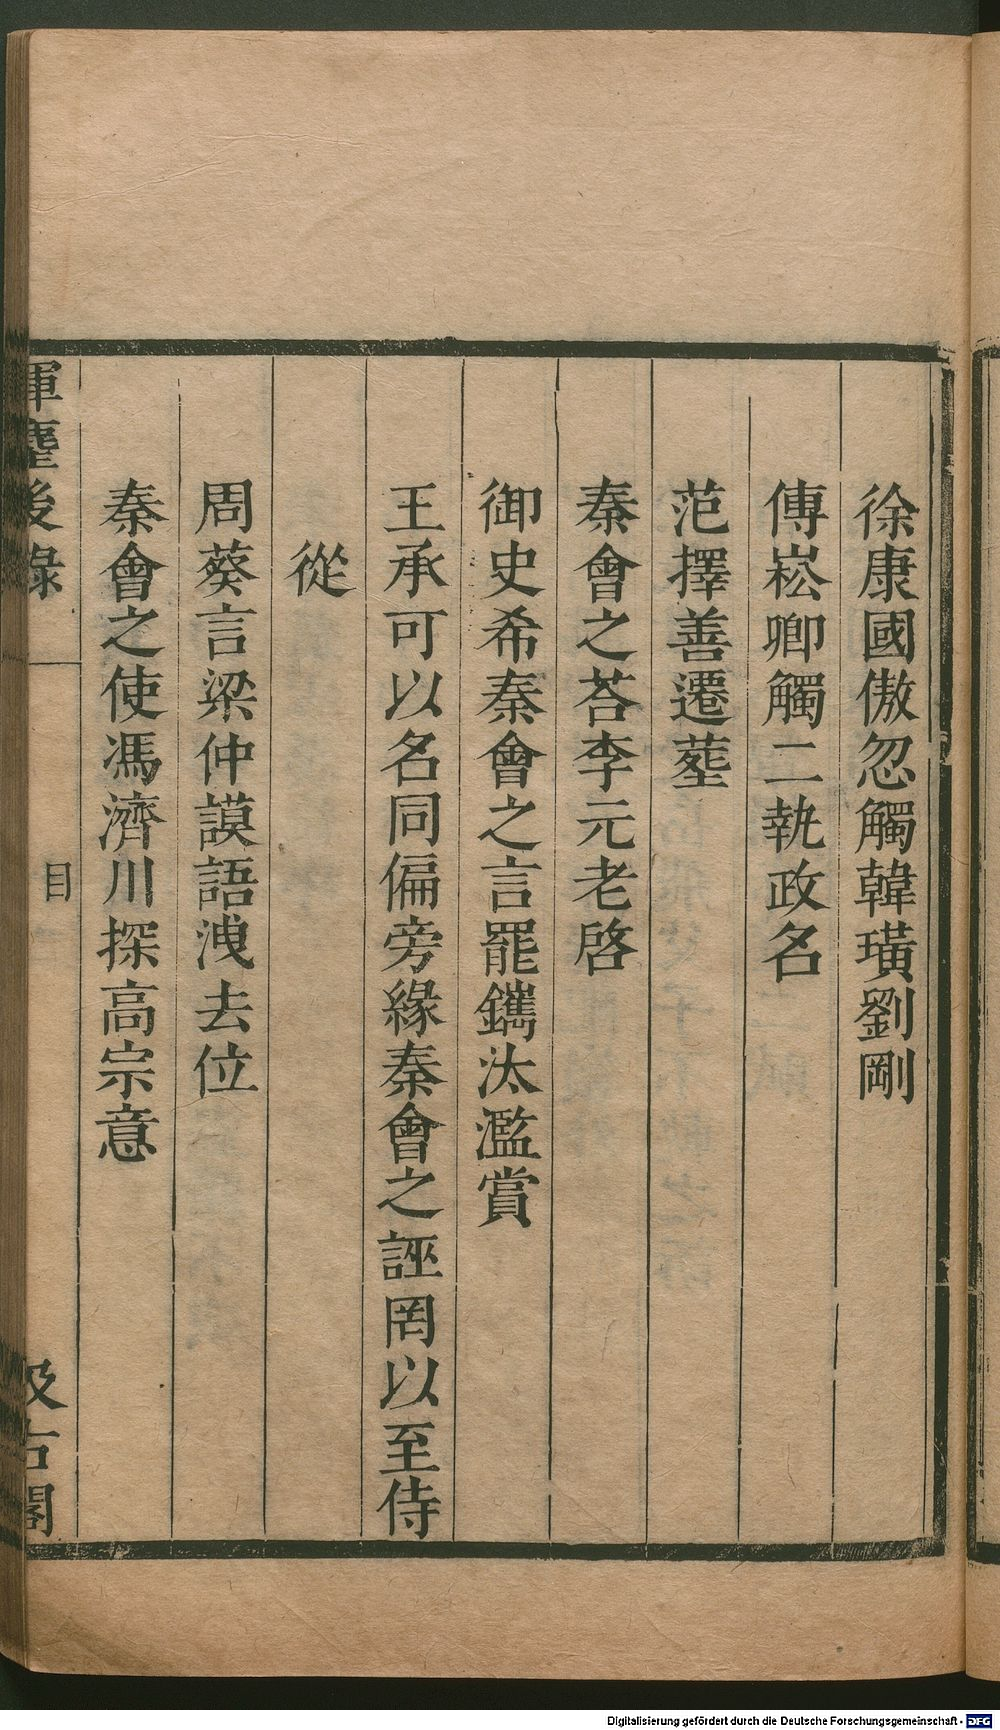 徐康國傲忽觸韓璜劉剛
傅崧卿觸二執政名
范擇善遷葬
秦會之荅李元老啓
御史希秦會之言罷鐫汰濫賞
王承可以名同偏旁緣秦會之誣罔以至侍
從
周葵言梁仲謨語洩去位
秦會之使馮濟川探高宗意
揮麈後錄
目
汲古閣
Digitalisierung gefördert durch die Deutsche Forschungsgemeinschaft - DFG